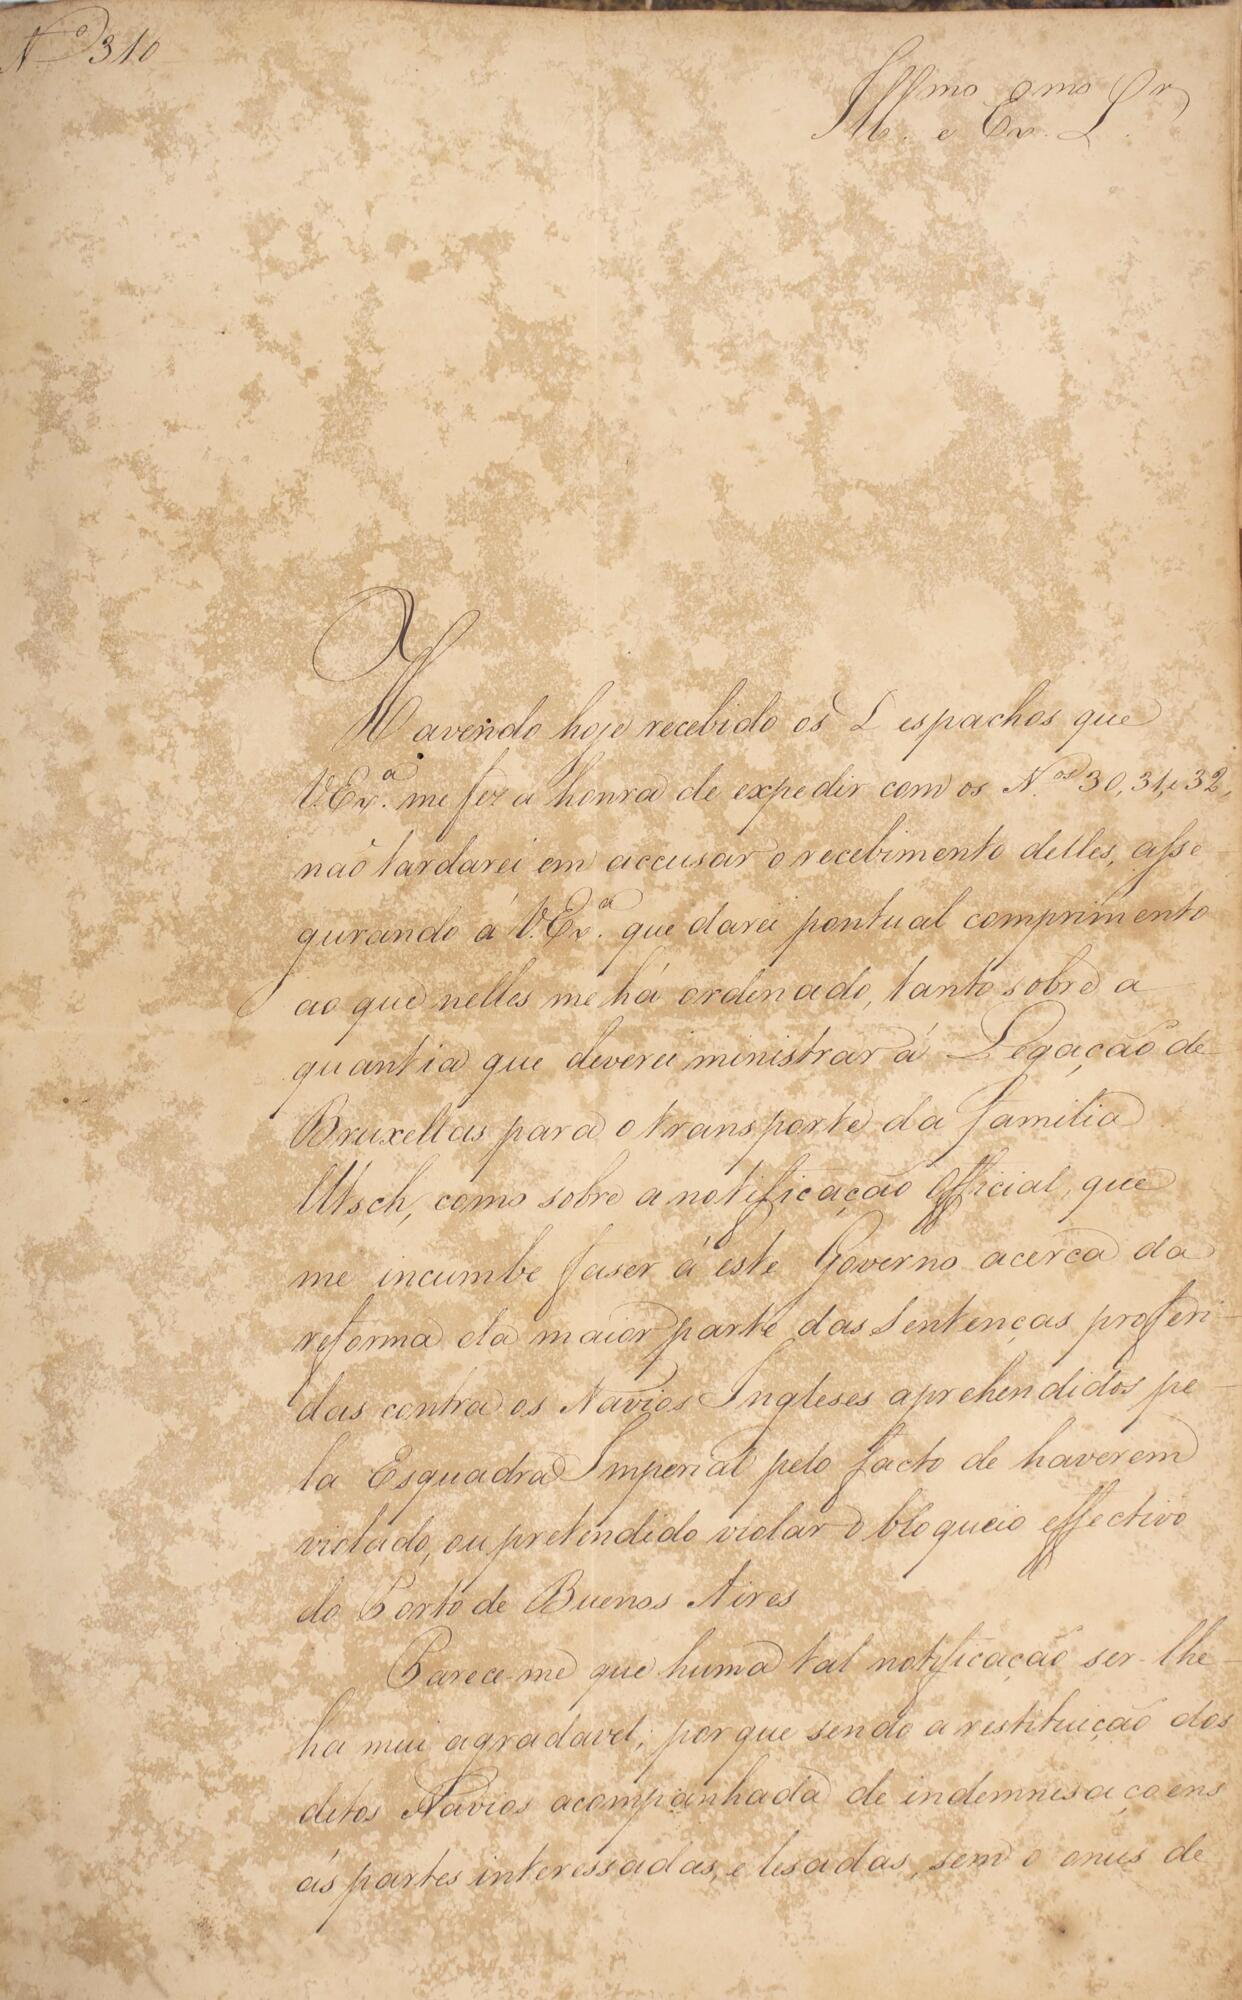 Nº 310
Illmo e Exmo Sr
Havendo hoje recebido os Despachos que
V.Exª. me fez a honra de expedir com os N.os 30, 31, e 32,
naõ tardarei em accusar o recebimento delles, asse-
gurando á V.Exª. que darei pontual comprimento
ao que nelles me há ordenado, tanto sobre a
quantia que deverei ministrar á Legação de
Bruxellas para o transporte da familia
Utsch, como sobre a notificação Official, que
me incumbe faser á este Governo acerca da
reforma da maior parte das Sentenças proferi-
das contra os Navios Ingleses aprehendidos pe-
la Esquadra Imperial pelo facto de haverem
violado, ou pretendido violar o bloqueio effectivo
do Porto de Buenos Aires
Parece-me que huma tal notificação ser-lhe-
ha mui agradavel; porque sendo a restituição dos
ditos Navios acompanhada de indemnisaçoens
ás partes interessadas, e lesadas, sem o onus de